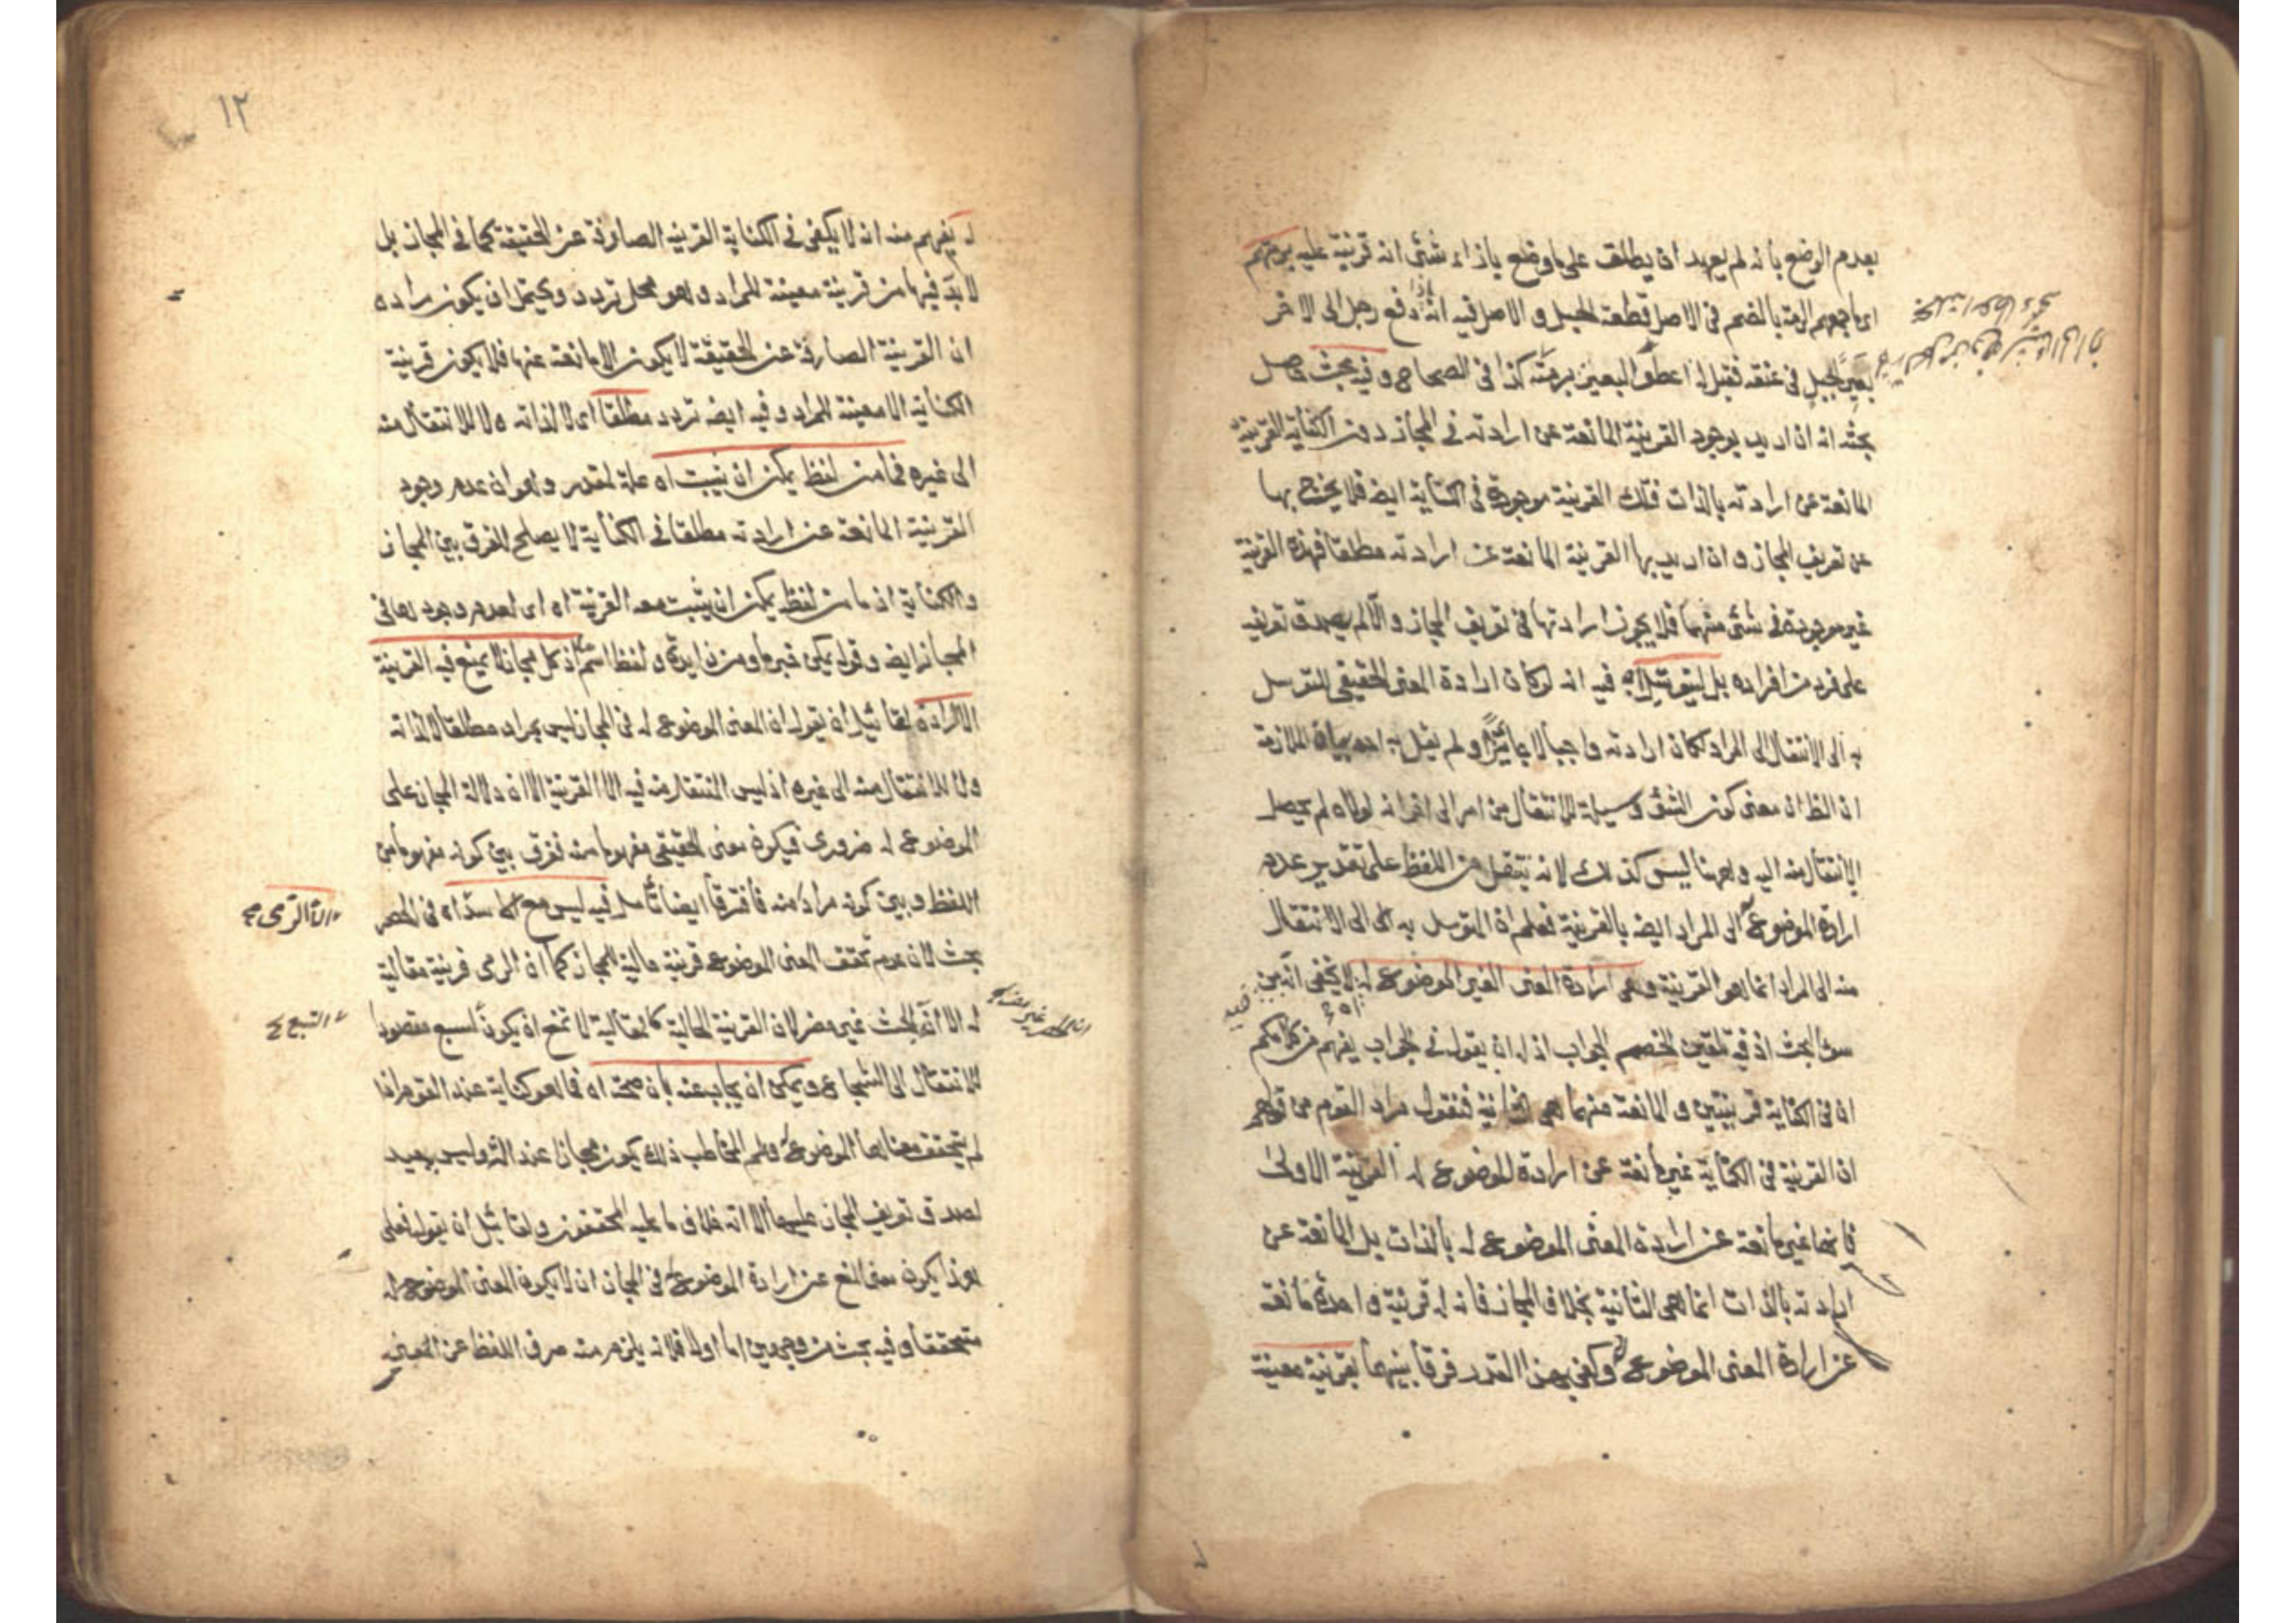 بعدم الوضع بانه لم يعهد ان يطلق على ما وضع بازاء شئ انه قرينة عليه برمتهم
اى باجمعهم الرمة بالضم فى الاصل قطعة الحبل و الاصل فيه انه دفع رجل الى الاخر
بعير بحبل فى عنقه فقيل له اعط البعير برمته كذا فى الصحاح وفيه بحث حاصل
بحثه انه ان اريد بوجود القرينة المانعة عن ارادته فى المجاز دون الكناية القرينة
المانعة عن ارادته بالذات فتلك القرينة موجودة فى الكناية ايضا فلا يخرج بها
عن تعريف المجاز و ان اريد بها القرينة المانعة عن ارادته مطلقا فهذه القرينة
غير موجودة فى شئ منهما فلا يجوز ارادتها فى تعريف المجاز و الا لم يصدق تعريفه
على فرد من افراده بل ليتوسل اه فيه انه لو كان ارادة المعنى الحقيقى للتوسل
به الى الانتقال الى المراد لكان ارادته واجبا لا جائزا و لم يقل به احد بيان الملازمة
ان الظ ان معنى كون الشئ وسيلة للانتقال من امر الى اخر انه لولاه لم يحصل
الانتقال منه اليه و ههنا ليس كذلك لانه ينتقل من اللفظ على تقدير عدم
ارادة الموضوع له الى المراد ايضا بالقرينة فعلم ان المتوسل به الى الانتقال
منه الى المراد انما هو القرينة و هى ارادة المعنى الغير الموضوع له لا يخفى انه بين
سوء البحث اذ فيه تلقين الخصم الجواب اذ له ان يقول فى الجواب يفهم من كلامكم
ان فى الكناية قرينتين و المانعة منهما هى الثانية فنقول مراد القوم من قولهم
ان القرينة فى الكناية غير مانعة عن ارادة الموضوع له القرينة الاولى
فانها غير مانعة عن ارادة المعنى الموضوع له بالذات بل المانعة عن
ارادته بالذات انما هى الثانية بخلاف المجاز فانه له قرينة واحدة مانعة
عن ارادة المعنى الموضوع له و كفى بهذا القدر فرقا بينهما بقرينة معينة
١٢
له يفهم منه انه لا يكفى فى الكناية القرينة الصارفة عن الحقيقة كما فى المجاز بل
لا بد فيها من قرينة معينة للمراد و هو محل تردد و يحتمل ان يكون مراده
ان القرينة الصارفة عن الحقيقة لا يكون الا مانعة عنها فلا يكون قرينة
الكناية الا معينة للمراد و فيه ايضا تردد مطلقا اى لا لذاته و لا للانتقال منه
الى غيره فما من لفظ يمكن ان يثبت اه علة لمقدر و هو ان عدم وجود
القرينة المانعة عن ارادته مطلقا فى الكناية لا يصلح للفرق بين المجاز
والكناية اذ ما من لفظ يمكن ان يثبت معه القرينة اه اى لعدم وجودها فى
المجاز ايضا و قوله يمكن خبر ما و من زايدة و لفظ اسم ما اذ كل مجاز لا يمنع فيه القرينة
الارادة لقائل ان يقول ان المعنى الموضوع له فى المجاز ليس بمراد مطلقا لا لذاته
ولا للانتقال منه الى غيره اذ ليس المنتقل منه فيه الا القرينة الا ان دلالة المجاز على
الموضوع له ضرورى فيكون معنى الحقيقى مفهوما منه ففرق بين كونه مفهوما من
اللفظ و بين كونه مرادا منه فافترقا ايضا تأمل فيه ليس مع اسد اه فى الحصر
بحث لان عدم تحقق المعنى الموضوع قرينة حالية للمجاز كما ان الرمى قرينة مقالية
له الا انه البحث غير مضر لان القرينة الحالية كالمقالية لا تمنع ان يكون السبع مقصودا
للانتقال الى الشجاع و يمكن ان يجاب عنه بان صحته اه فما هو كناية عند القوم اذا
لم يتحقق معناها الموضوع له و علم المخاطب ذلك يكون مجازا عند الش و ليس ببعيد
لصدق تعريف المجاز عليها الا انه خلاف ما عليه المحققون و لقائل ان يقول فعلى
هذا يكون معنى المنع عن ارادة الموضوع له فى المجاز ان لا يكون المعنى الموضوع له
متحققا و فيه بحث من وجهين اما اولا فلانه يلزم منه صرف اللفظ عن المعنى